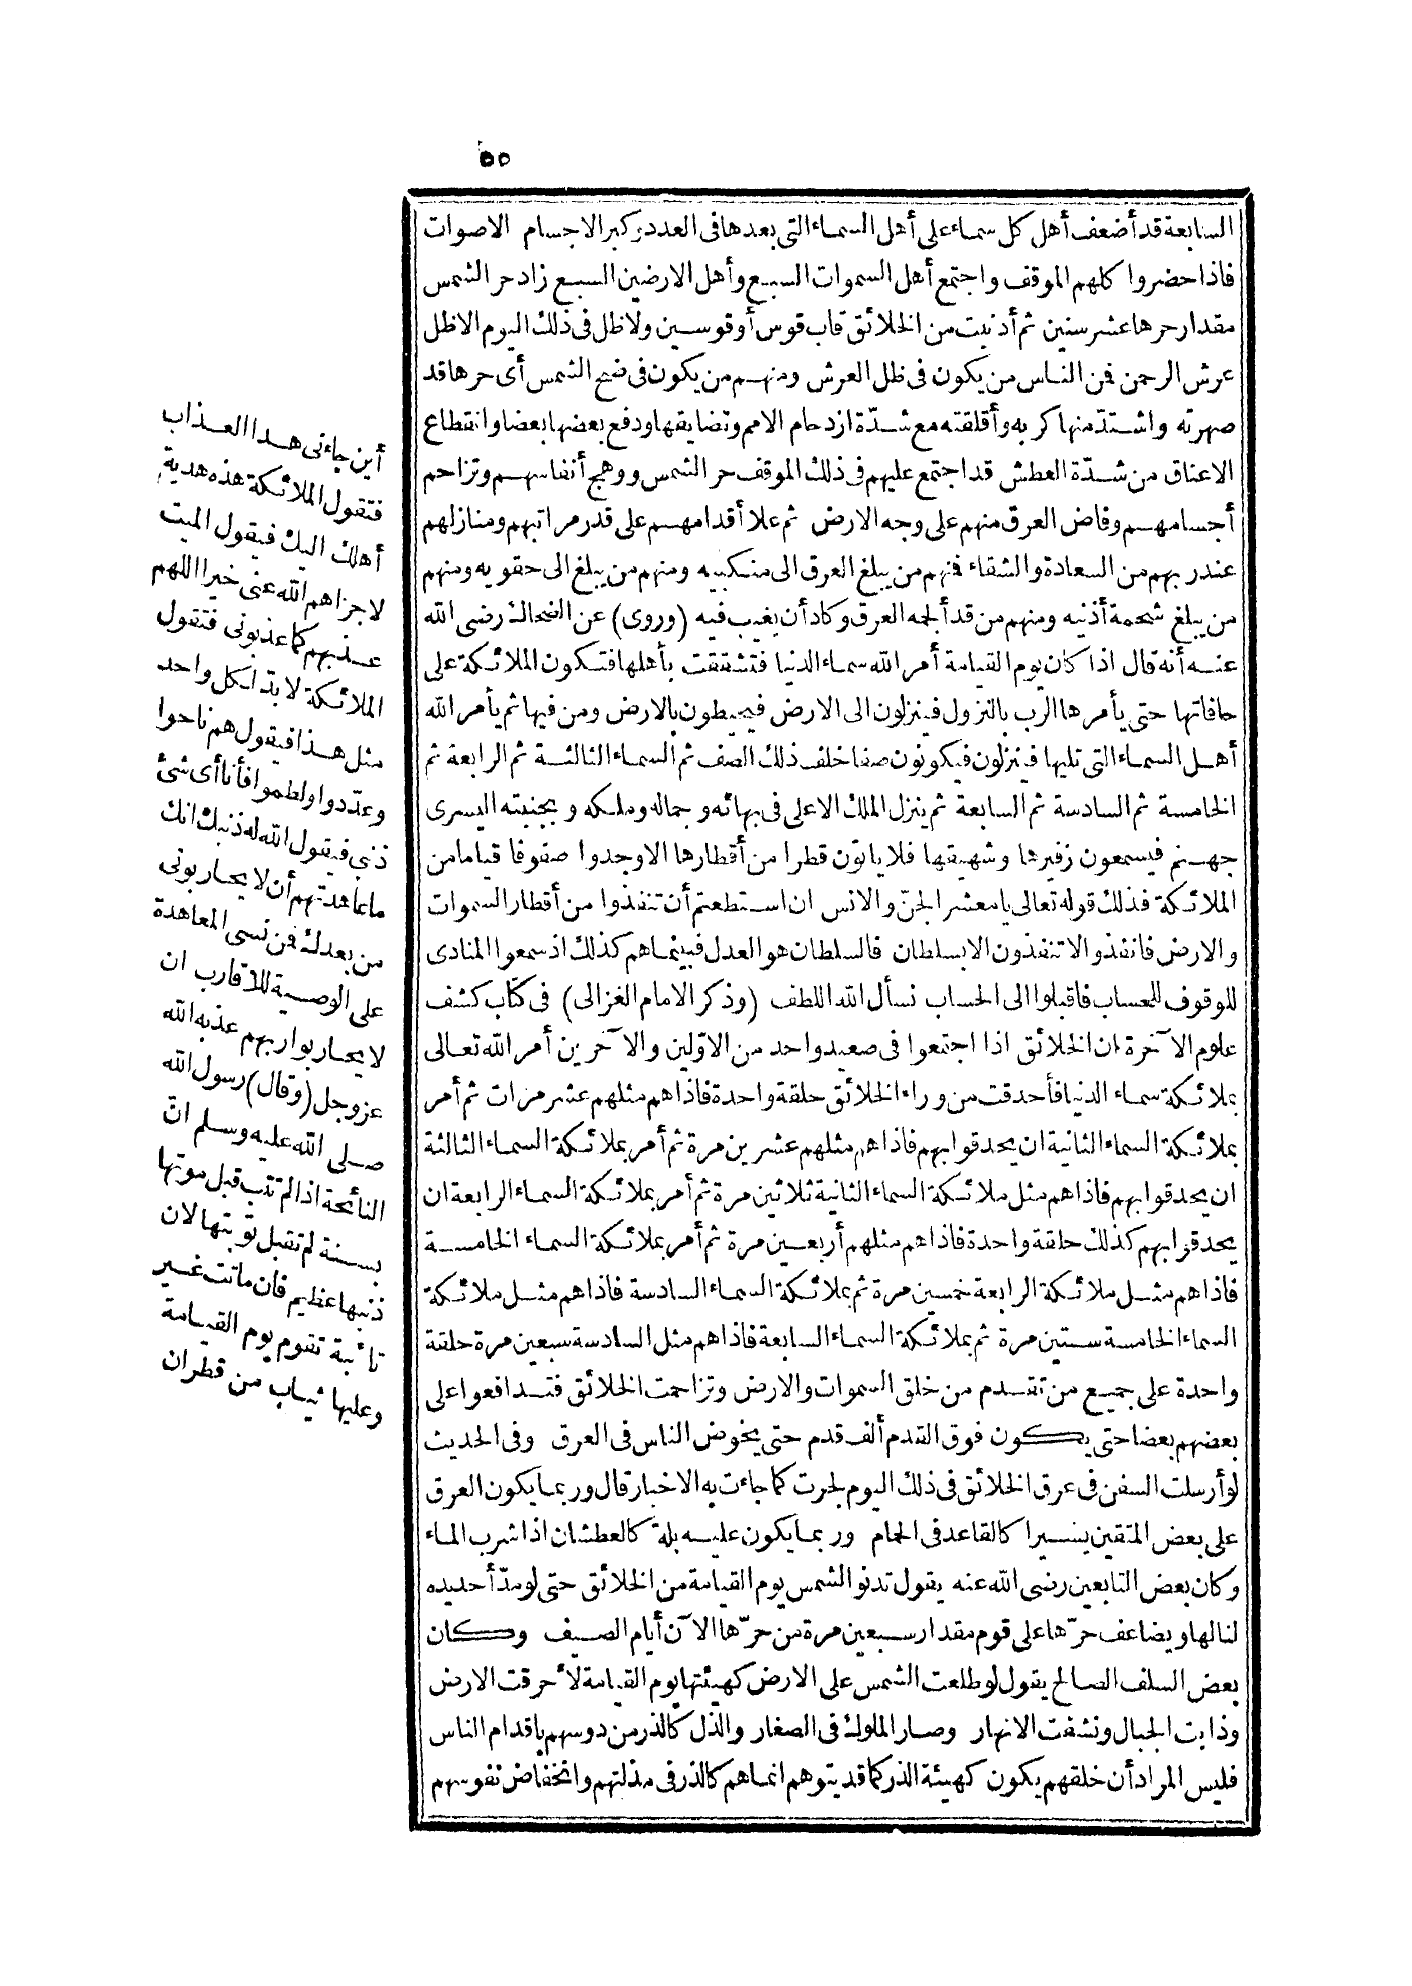 ٥٥
السابعة قد أضعف أهل كل سماء على أهل السماء التى بعدها فى العدد وكبر الاجسام الاصوات
فاذا حضروا كلهم الموقف واجتمع أهل السموات السبع وأهل الارضين السبع زاد حر الشمس
مقدار حرها عشر سنين ثم أدنيت من الخلائق قاب قوس أو قوسين ولا ظل فى ذلك اليوم الا ظل
عرش الرحمن فمن الناس من يكون فى ظل العرش ومنهم من يكون فى ضح الشمس أى حرها قد
صهرته واشتد منها كربه وأقلقته مع شدّة ازدحام الامم وتضايقها ودفع بعضها بعضا وانقطاع
الاعناق من شدّة العطش قد اجتمع عليهم فى ذلك الموقف حر الشمس ووهج أنفاسهم وتزاحم
أجسامهم وفاض العرق منهم على وجه الارض ثم علا أقدامهم على قدر مراتبهم ومنازلهم
عند ربهم من السعادة والشقاء فمنهم من يبلغ العرق الى منكبيه ومنهم من يبلغ الى حقويه ومنهم
من يبلغ شحمة أذنيه ومنهم من قد ألجمه العرق وكاد أن يغيب فيه (وروى) عن الضحاك رضى الله
عنه أنه قال اذا كان يوم القيامة أمر الله سماء الدنيا فتشققت بأهلها فتكون الملائكة على
حافاتها حتى يأمرها الرب بالنزول فينزلون الى الارض فيحيطون بالارض ومن فيها ثم يأمر الله
أهل السماء التى تليها فينزلون فيكونون صفا خلف ذلك الصف ثم السماء الثالثة ثم الرابعة ثم
الخامسة ثم السادسة ثم السابعة ثم ينزل الملك الاعلى فى بهائه وجماله وملكه وبجنبته اليسرى
جهنم فيسمعون زفيرها وشهيقها فلا يأتون قطرا من أقطارها الا وجدوا صفوفا قياما من
الملائكة فذلك قوله تعالى يا معشر الجنّ والانس ان استطعتم أن تنفذوا من أقطار السموات
والارض فانفذوا لا تنفذون الا بسلطان فالسلطان هو العدل فبينماهم كذلك اذ سمعوا المنادى
للوقوف للحساب فاقبلوا الى الحساب نسأل الله اللطف (وذكر الامام الغزالى) فى كتاب كشف
علوم الآخرة ان الخلائق اذا اجتمعوا فى صعيد واحد من الاوّلين والآخرين أمر الله تعالى
بملائكة سماء الدنيا فأحدقت من وراء الخلائق حلقة واحدة فاذاهم مثلهم عشر مرات ثم أمر
بملائكة السماء الثانية ان يحدقوا بهم فاذاهم مثلهم عشرين مرة ثم أمر بملائكة السماء الثالثة
ان يحدقوا بهم فاذاهم مثل ملائكة السماء الثانية ثلاثين مرة ثم أمر بملائكة السماء الرابعة ان
يحدقوا بهم كذلك حلقة واحدة فاذاهم مثلهم أربعين مرة ثم أمر بملائكة السماء الخامسة
فاذاهم مثل ملائكة الرابعة خمسين مرة ثم بملائكة السماء السادسة فاذاهم مثل ملائكة
السماء الخامسة ستين مرة ثم بملائكة السماء السابعة فاذاهم مثل السادسة سبعين مرة حلقة
واحدة على جميع من تقدم من خلق السموات والارض وتزاحمت الخلائق فتدافعوا على
بعضهم بعضا حتى يكون فوق القدم ألف قدم حتى يخوض الناس فى العرق وفى الحديث
لو أرسلت السفن فى عرق الخلائق فى ذلك اليوم لجرت كما جاءت به الاخبار قال وربما يكون العرق
على بعض المتقين يسيرا كالقاعد فى الحمام وربما يكون عليه بلة كالعطشان اذا شرب الماء
وكان بعض التابعين رضى الله عنه يقول تدنو الشمس يوم القيامة من الخلائق حتى لو مدّ أحد يده
لنالها ويضاعف حرّها على قوم مقدار سبعين مرة من حرّها الآن أيام الصيف وكان
بعض السلف الصالح يقول لو طلعت الشمس على الارض كهيئتها يوم القيامة لأحرقت الارض
وذابت الجبال ونشفت الانهار وصار الملوك فى الصغار والذل كالذر من دوسهم باقدام الناس
فليس المراد أن خلقهم يكون كهيئة الذر كما قد يتوهم انماهم كالذر فى مذلتهم وانخفاض نفوسهم
أين جاءنى هذا العذاب
فتقول الملائكة هذه هدية
أهلك اليك فيقول الميت
لا جزاهم الله عنى خيرا اللهم
عذبهم كما عذبونى فتقول
الملائكة لا بدّ لكل واحد
مثل هذا فيقول هم ناحوا
وعدّدوا ولطموا فأنا أى شئ
ذنبى فيقول الله له ذنبك انك
ما عاهدتهم أن لا يحاربونى
من بعدك فمن نسى المعاهدة
على الوصية للاقارب ان
لا يحاربوا ربهم عذبه الله
عز وجل (وقال) رسول الله
صلى الله عليه وسلم انّ
النائحة اذا لم تتب قبل موتها
بسنة لم تقبل توبتها لان
ذنبها عظيم فان ماتت غير
تائبة تقوم يوم القيامة
وعليها ثياب من قطران